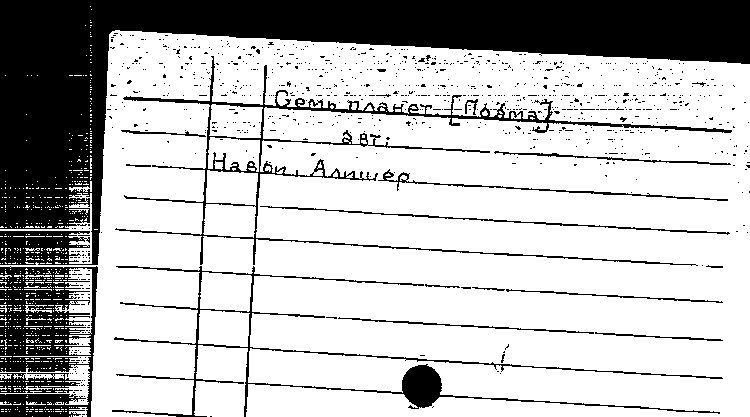 Семь планет. [Поэма].
авт:
Навои, Алишер.